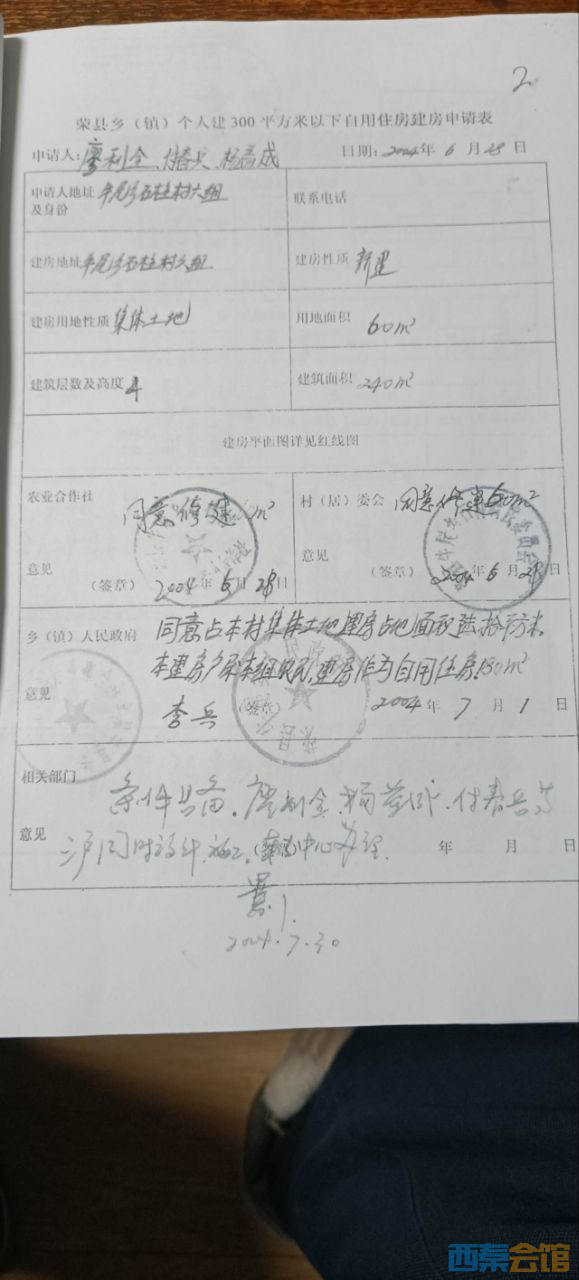 2
荣县乡（镇）个人建300平方米以下自用住房建房申请表
申请人：廖利全、付春兵 杨 成 日期：2004年6月28日
申请人地址及身份 石柱村六组 联系电话
建房地址 石柱村六组 建房性质 新建
建房用地性质 集体土地 用地面积 60m²
建筑层数及高度 4 建筑面积 240m²
建房平面图详见红线图
农业合作社 同意修建 m² 村（居）委会 同意修建60m²
意见 （签章） 2004年6月28日 意见 （签章） 2004年6月28日
乡（镇）人民政府 同意占本村集体土地建房占地面积陆拾平方米，
本建房户系本组农民，建房作为自用住房 m²
意见 李兵 （签章） 2004年7月1日
相关部门 条件具备，廖利全、杨 、付春兵等
意见 三户同时设计、施工， 中心办理。 年 月 日
2004.7.30
西秦会馆